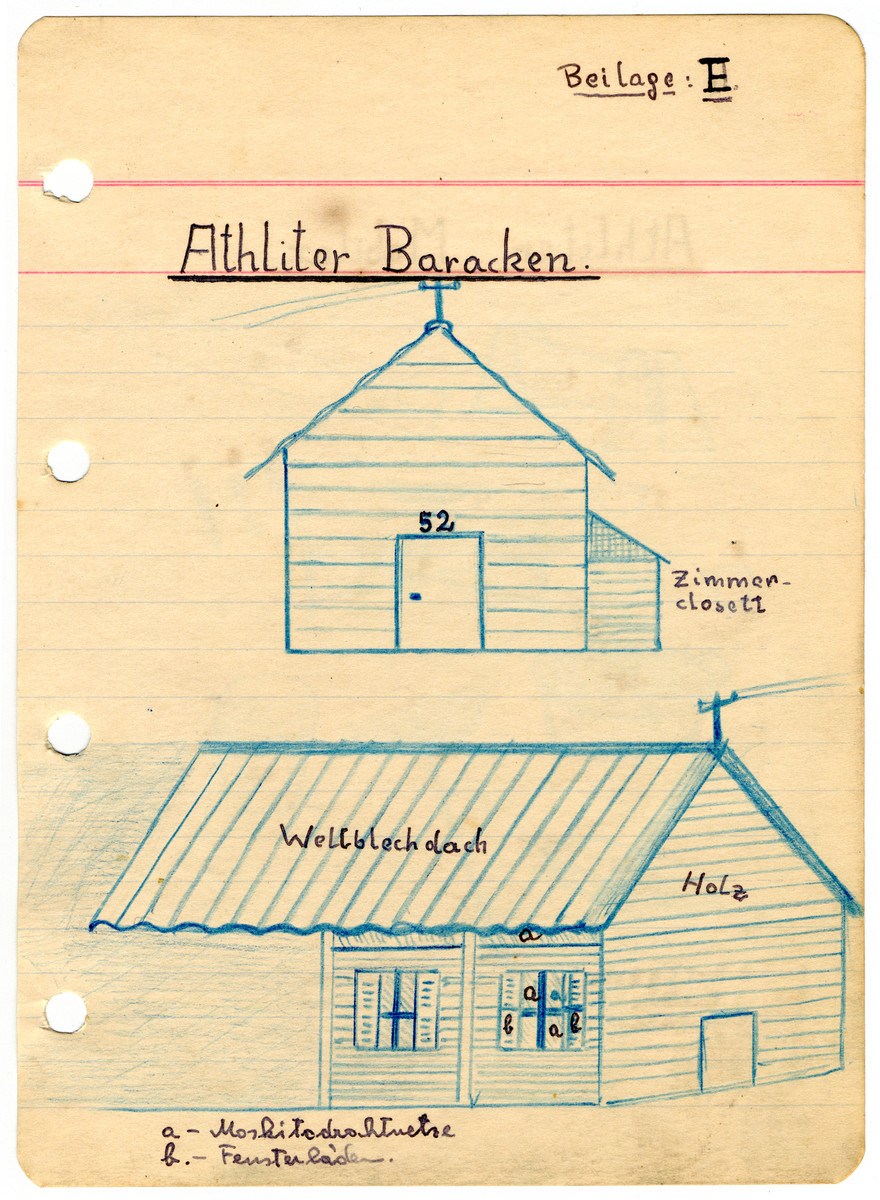 Beilage: E.
Athliter Baracken.
52
Zimmer-
closett
Wellblechdach
Holz
a
a
a
b
a
b
a - Moskitodrahtnetze
b.- Fensterläden.